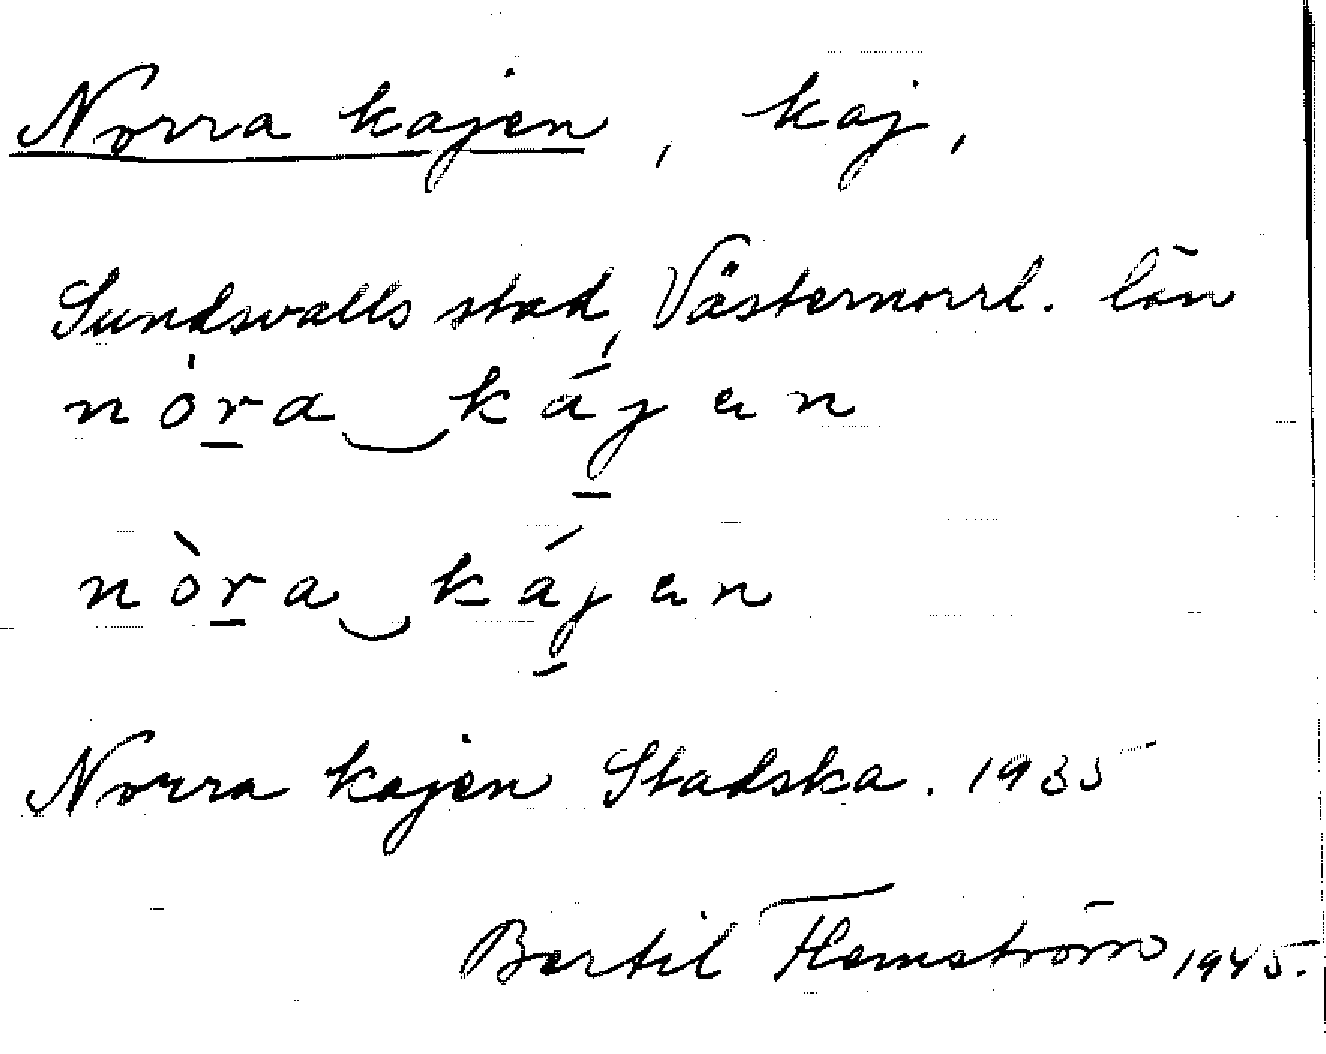 Norra kajen, kaj,
Sundsvalls stad, Västernorrl. län
nòra‿kájen
nòra‿kájen
Norra kajen Stadska. 1935
Bertil Flemström 1945.